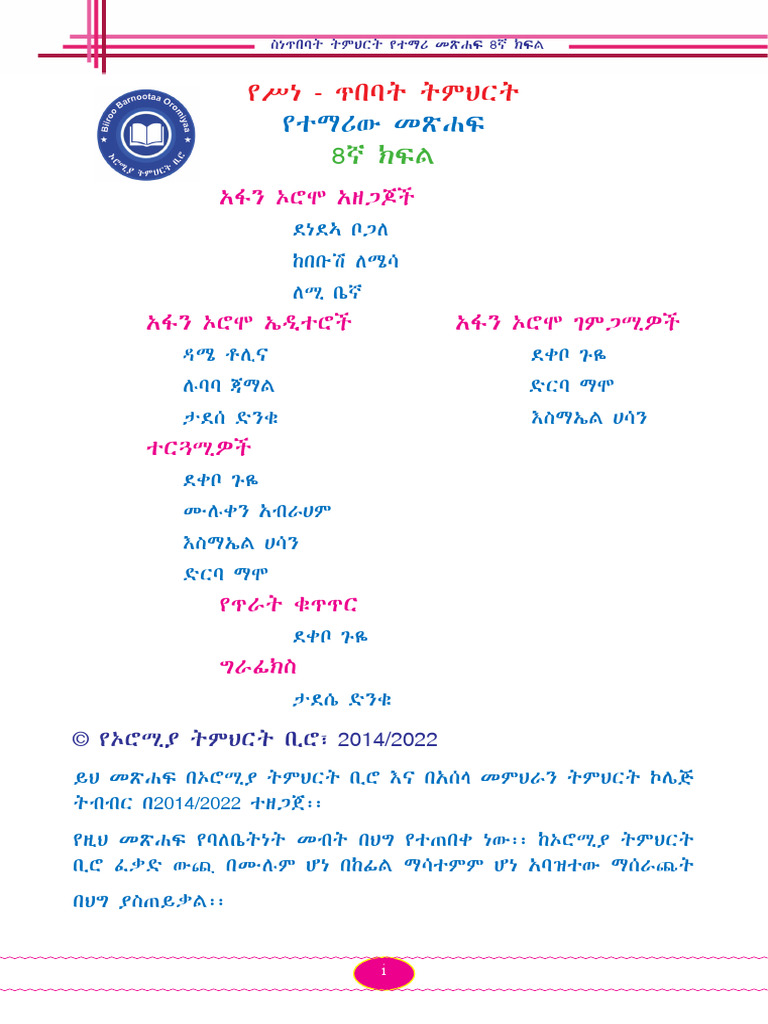 ስነጥበባት ትምህርት የተማሪ መጽሐፍ 8ኛ ክፍል
Biiroo Barnootaa Oromiyaa
ኦሮሚያ ትምህርት ቢሮ
የሥነ - ጥበባት ትምህርት
የተማሪው መጽሐፍ
8ኛ ክፍል
አፋን ኦሮሞ አዘጋጆች
ደነደኣ ቦጋለ
ከበቡሽ ለሜሳ
ለሚ ቤኛ
አፋን ኦሮሞ ኤዲተሮች
ዳሜ ቶሊና
ሉባባ ጃማል
ታደሰ ድንቁ
አፋን ኦሮሞ ገምጋሚዎች
ደቀቦ ጉዬ
ድርባ ማሞ
እስማኤል ሀሳን
ተርጓሚዎች
ደቀቦ ጉዬ
ሙሉቀን አብራሀም
እስማኤል ሀሳን
ድርባ ማሞ
የጥራት ቁጥጥር
ደቀቦ ጉዬ
ግራፊክስ
ታደሴ ድንቁ
© የኦሮሚያ ትምህርት ቢሮ፣ 2014/2022
ይህ መጽሐፍ በኦሮሚያ ትምህርት ቢሮ እና በአሰላ መምህራን ትምህርት ኮሌጅ
ትብብር በ2014/2022 ተዘጋጀ፡፡
የዚህ መጽሐፍ የባለቤትነት መብት በህግ የተጠበቀ ነው፡፡ ከኦሮሚያ ትምህርት
ቢሮ ፈቃድ ውጪ በሙሉም ሆነ በከፊል ማሳተምም ሆነ አባዝተው ማሰራጨት
በህግ ያስጠይቃል፡፡
i